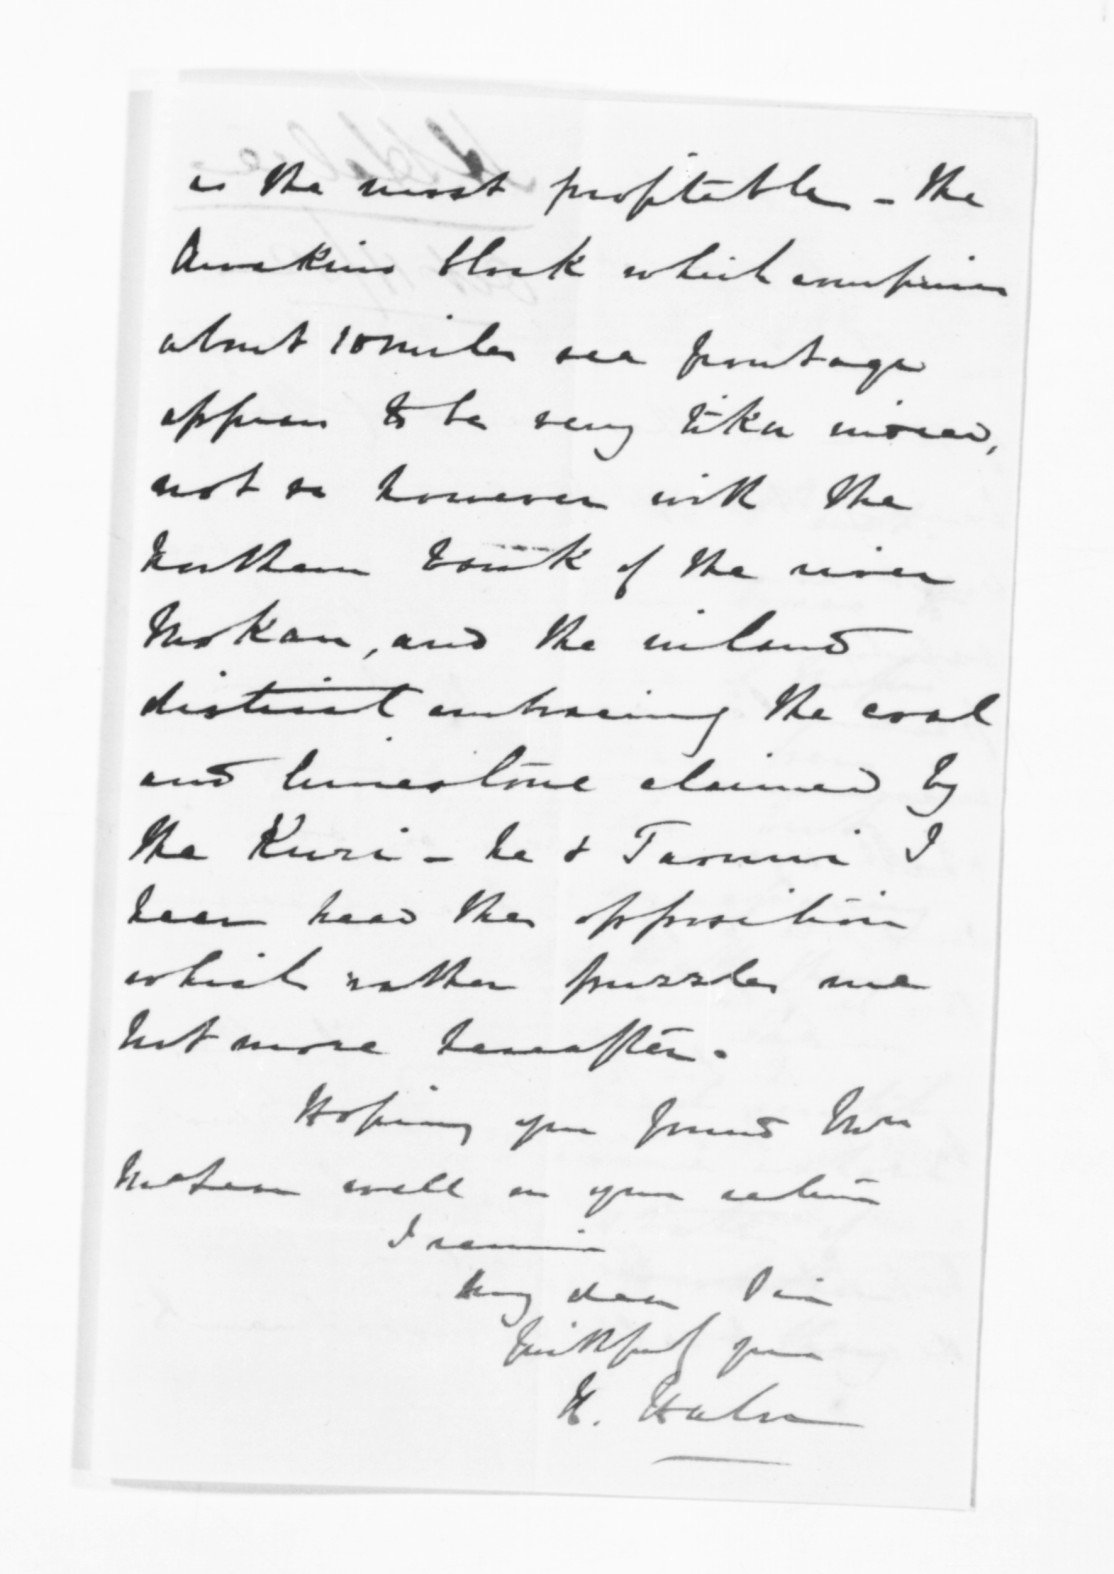 is the most profitable - the
Awakino block which comprises
about 10 miles sea frontage
appears to be very tika
not so however with the
Northern bank of the river
Mokau, and the inland
district embracing the coal
and limestone claimed by
the Kuri - he & Taonui I
hear head the opposition
which rather puzzles me
but more hereafter.
Hoping you found Mrs
McLean well on your return
I remain
My dear Sir
faithfully yours
H. Halse